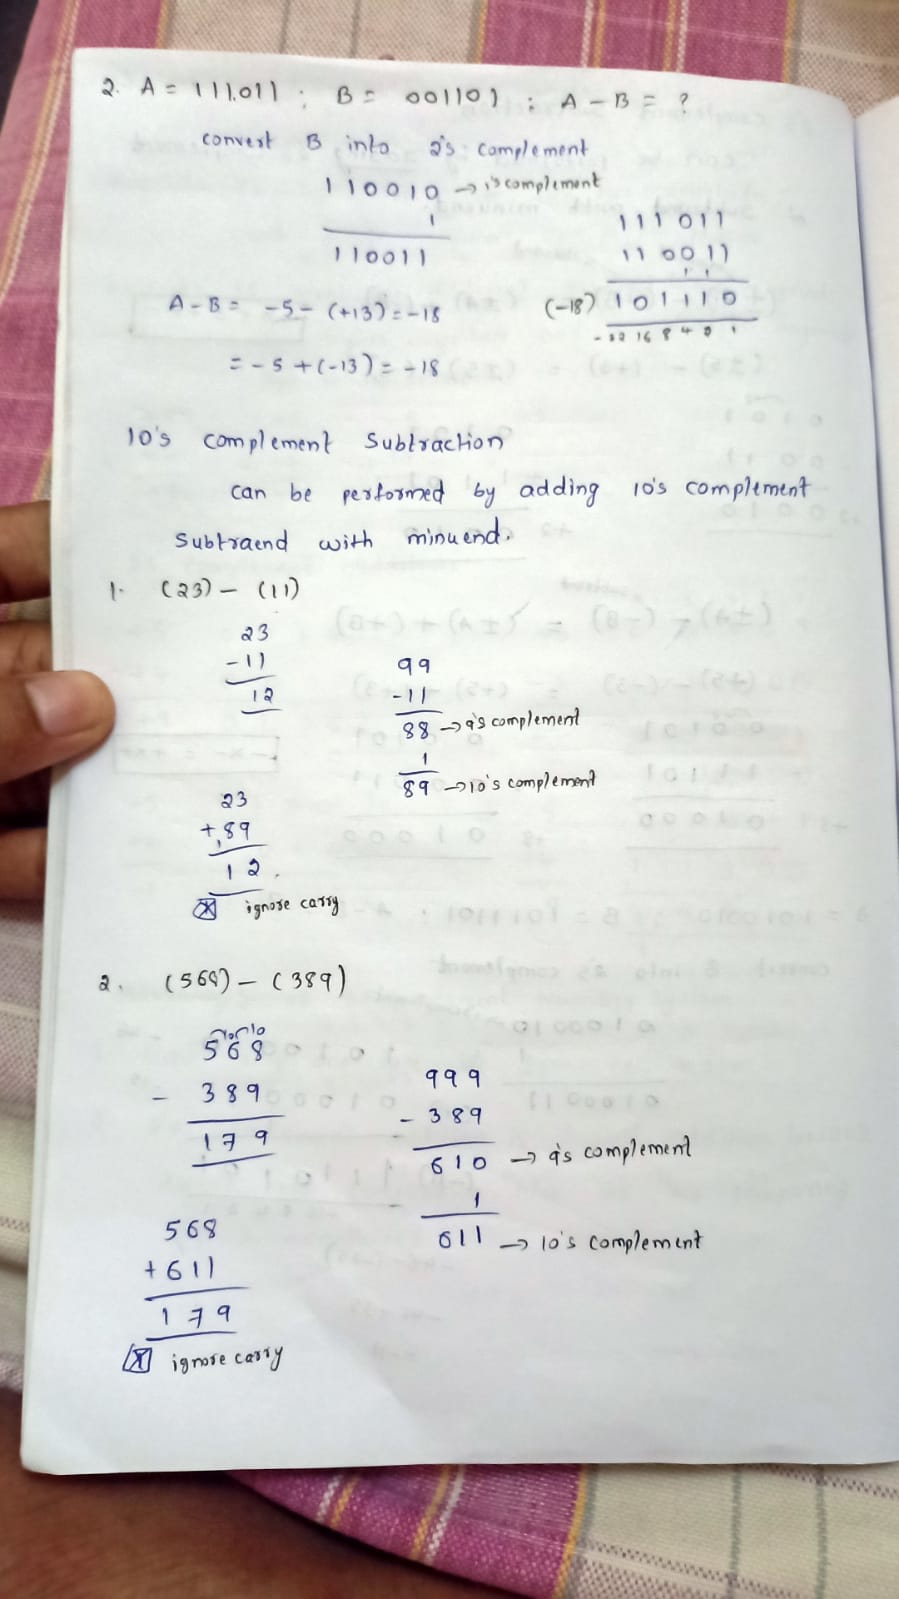 2. A = 111011 ; B = 001101 ; A - B = ?
convert B into 2's complement
110010 → 1's complement
1
110011
111011
110011
1 1
(-18) 101110
-32 16 8 4 2 1
A-B = -5 - (+13) = -18
= -5 + (-13) = -18
10's complement Subtraction
can be performed by adding 10's complement
Subtraend with minuend.
1. (23) - (11)
23
-11
12
99
-11
88 → 9's complement
1
89 → 10's complement
23
+89
1
12.
1 ignore carry
2. (568) - (389)
10 10
568
- 389
179
999
- 389
610 → 9's complement
1
611 → 10's complement
568
+611
179
1 ignore carry